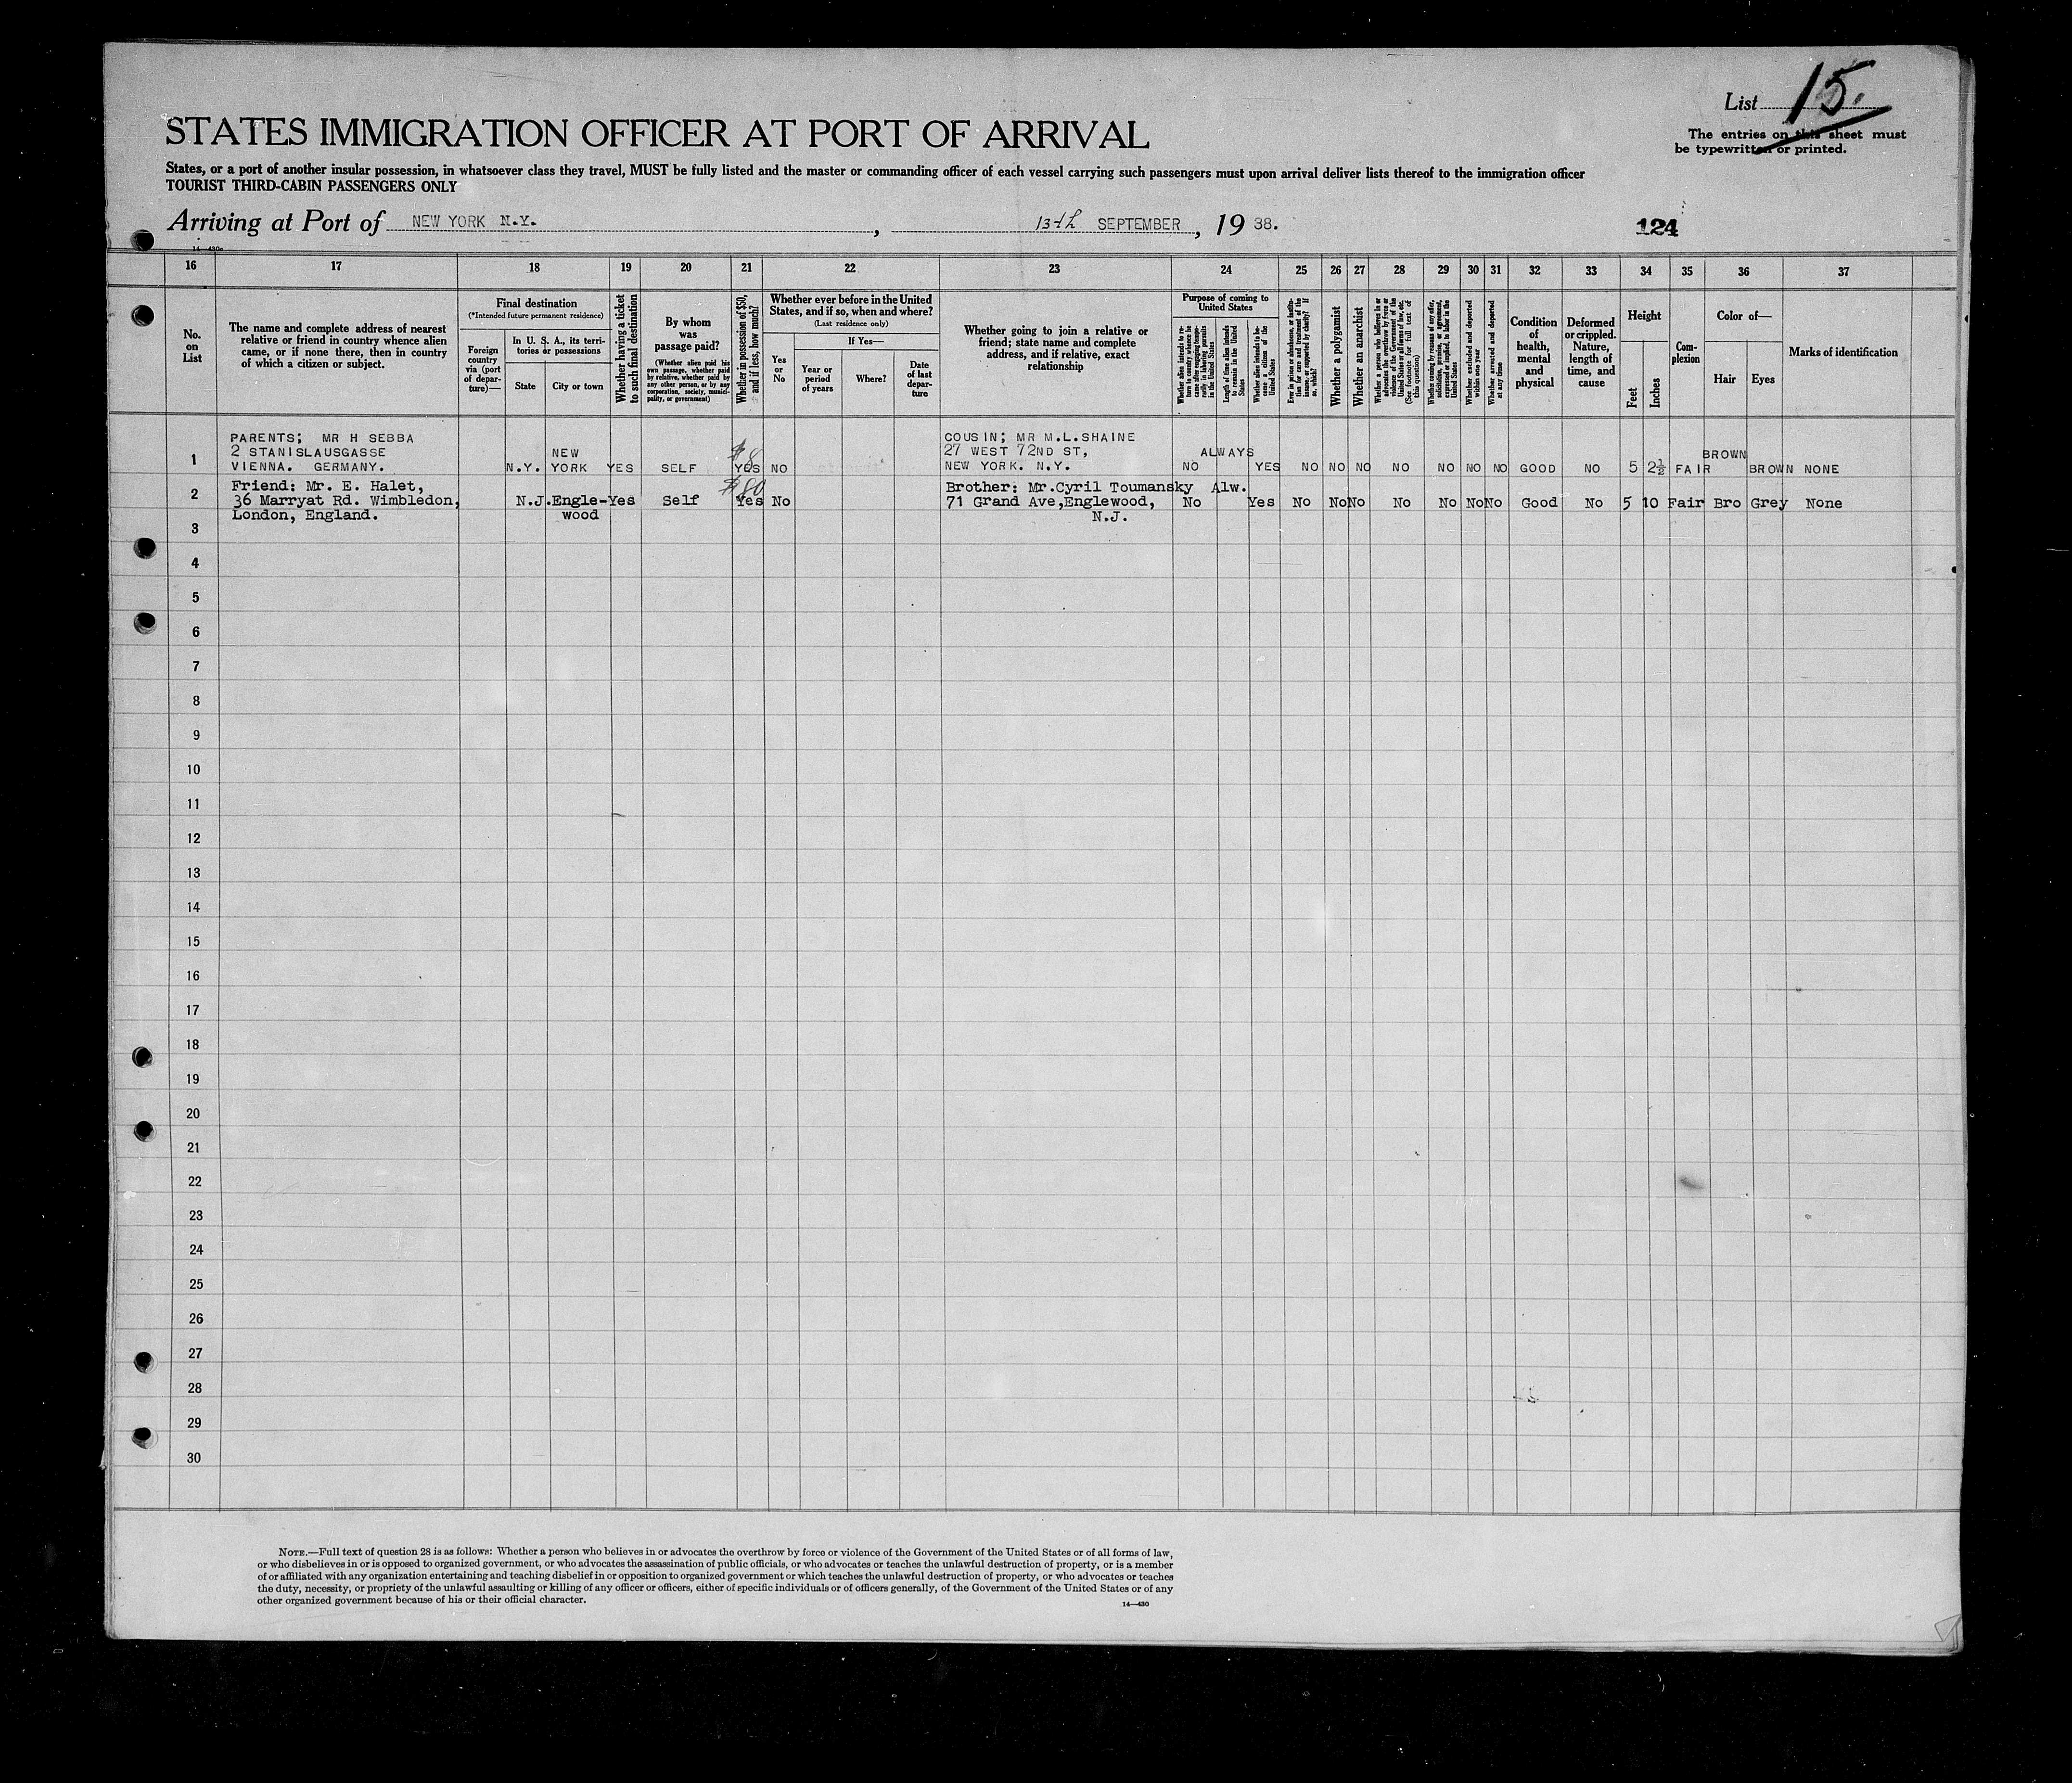 List 15.
STATES IMMIGRATION OFFICER AT PORT OF ARRIVAL
The entries on this sheet must
be typewritten or printed.
States, or a port of another insular possession, in whatsoever class they travel, MUST be fully listed and the master or commanding officer of each vessel carrying such passengers must upon arrival deliver lists thereof to the immigration officer
TOURIST THIRD-CABIN PASSENGERS ONLY
Arriving at Port of NEW YORK N.Y. , 13th SEPTEMBER , 19 38.
124
14—430
16 17 18 19 20 21 22 23 24 25 26 27 28 29 30 31 32 33 34 35 36 37
No.
on
List
The name and complete address of nearest
relative or friend in country whence alien
came, or if none there, then in country
of which a citizen or subject.
Final destination
(*Intended future permanent residence)
Foreign
country
via (port
of depar-
ture)—
In U. S. A., its terri-
tories or possessions
State
City or town
Whether having a ticket
to such final destination
By whom
was
passage paid?
(Whether alien paid his
own passage, whether paid
by relative, whether paid by
any other person, or by any
corporation, society, munici-
pality, or government)
Whether in possession of $50,
and if less, how much?
Whether ever before in the United
States, and if so, when and where?
(Last residence only)
Yes
or
No
If Yes—
Year or
period
of years
Where?
Date
of last
depar-
ture
Whether going to join a relative or
friend; state name and complete
address, and if relative, exact
relationship
Purpose of coming to
United States
Whether alien intends to re-
turn to country whence he
came after engaging tempo-
rarily in laboring pursuits
in the United States
Length of time alien intends
to remain in the United
States
Whether alien intends to be-
come a citizen of the
United States
Ever in prison or almshouse, or institu-
tion for care and treatment of the
insane, or supported by charity? If
so, which?
Whether a polygamist
Whether an anarchist
Whether a person who believes in or
advocates the overthrow by force or
violence of the Government of the
United States or all forms of law, etc.
(See footnote for full text of
this question)
Whether coming by reason of any offer,
solicitation, promise, or agreement,
expressed or implied, to labor in the
United States
Whether excluded and deported
within one year
Whether arrested and deported
at any time
Condition
of
health,
mental
and
physical
Deformed
or crippled.
Nature,
length of
time, and
cause
Height
Feet
Inches
Com-
plexion
Color of—
Hair
Eyes
Marks of identification
1
PARENTS; MR H SEBBA
2 STANISLAUSGASSE
VIENNA. GERMANY.
N.Y.
NEW
YORK
YES SELF $8 YES NO
COUSIN; MR M.L.SHAINE
27 WEST 72ND ST,
NEW YORK. N.Y.
NO ALWAYS YES NO NO NO NO NO NO NO GOOD NO 5 2½ FAIR BROWN BROWN NONE
2
Friend: Mr. E. Halet,
36 Marryat Rd. Wimbledon,
London, England.
N.J.
Engle-
wood
Yes Self $80 Yes No
Brother: Mr.Cyril Toumansky
71 Grand Ave,Englewood,
N.J.
No Alw. Yes No No No No No No No Good No 5 10 Fair Bro Grey None
3
4
5
6
7
8
9
10
11
12
13
14
15
16
17
18
19
20
21
22
23
24
25
26
27
28
29
30
NOTE.—Full text of question 28 is as follows: Whether a person who believes in or advocates the overthrow by force or violence of the Government of the United States or of all forms of law,
or who disbelieves in or is opposed to organized government, or who advocates the assassination of public officials, or who advocates or teaches the unlawful destruction of property, or is a member
of or affiliated with any organization entertaining and teaching disbelief in or opposition to organized government or which teaches the unlawful destruction of property, or who advocates or teaches
the duty, necessity, or propriety of the unlawful assaulting or killing of any officer or officers, either of specific individuals or of officers generally, of the Government of the United States or of any
other organized government because of his or their official character.
14—430